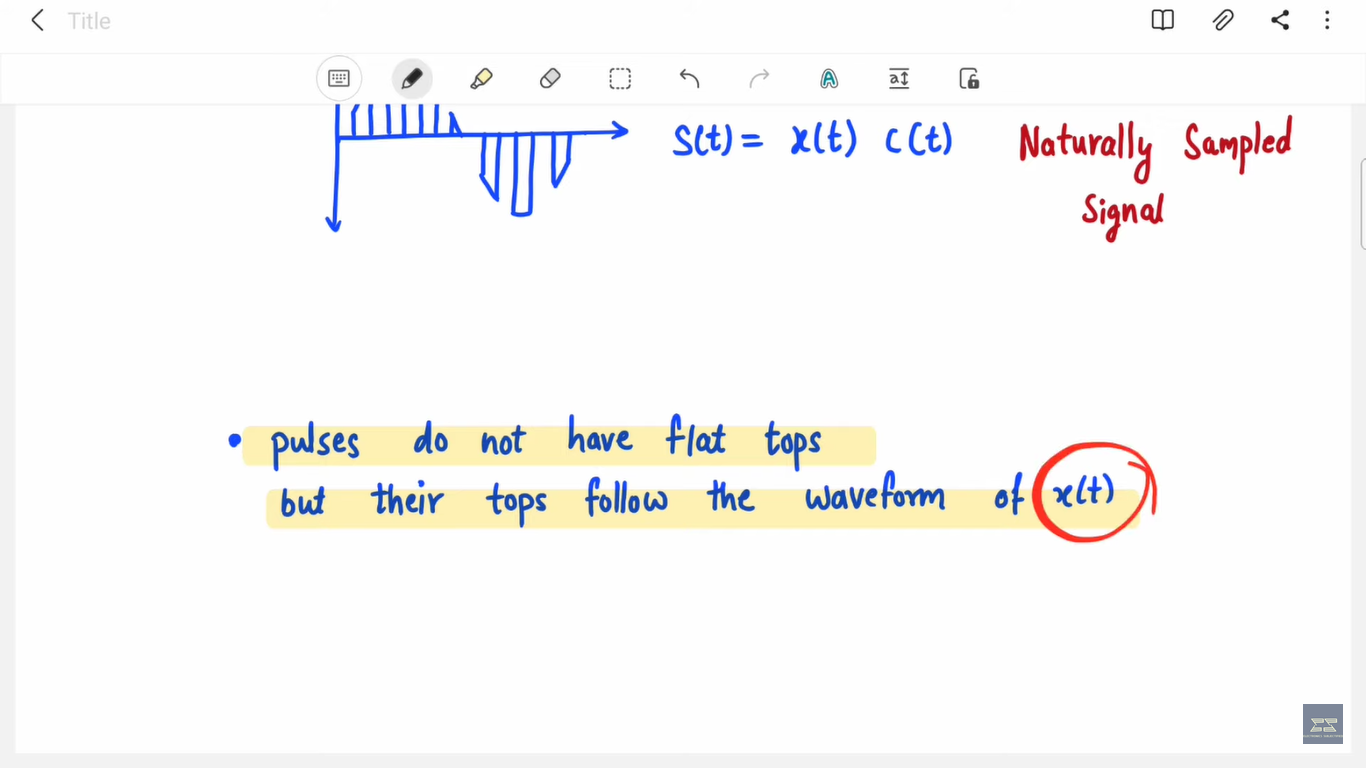 Title
S(t) = x(t) c(t) Naturally Sampled
Signal
• pulses do not have flat tops
but their tops follow the waveform of x(t)